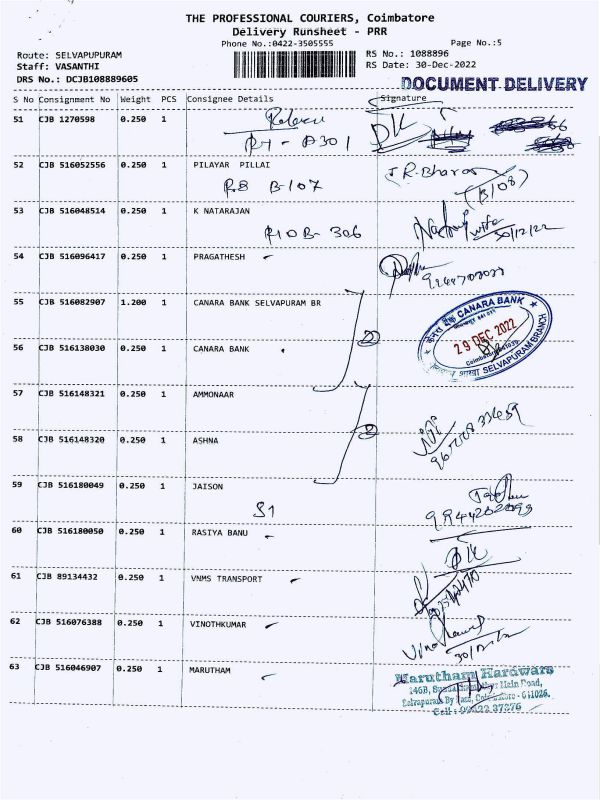 THE PROFESSIONAL COURIERS, Coimbatore
Delivery Runsheet - PRR
Phone No.:0422-3505555
Page No.:5
Route: SELVAPUPURAM
RS No.: 1088896
Staff: VASANTHI
RS Date: 30-Dec-2022
DRS No.: DCJB108889605
DOCUMENT DELIVERY
S No Consignment No Weight PCS Consignee Details Signature
51 CJB 1270598 0.250 1
52 CJB 516052556 0.250 1 PILAYAR PILLAI
B-107
J.R.Bharas
(B/08)
53 CJB 516048514 0.250 1 K NATARAJAN
B-306
30/12/22
54 CJB 516096417 0.250 1 PRAGATHESH
55 CJB 516082907 1.200 1 CANARA BANK SELVAPURAM BR
CANARA BANK
29 DEC 2022
SELVAPURAM BRANCH
2
56 CJB 516138030 0.250 1 CANARA BANK
57 CJB 516148321 0.250 1 AMMONAAR
2
58 CJB 516148320 0.250 1 ASHNA
59 CJB 516180049 0.250 1 JAISON
S1
60 CJB 516180050 0.250 1 RASIYA BANU
61 CJB 89134432 0.250 1 VNMS TRANSPORT
62 CJB 516076388 0.250 1 VINOTHKUMAR
63 CJB 516046907 0.250 1 MARUTHAM
Marutham Hardware
146B, Main Road,
Selvapuram By Pass, Coimbatore - 641026.
Cell :